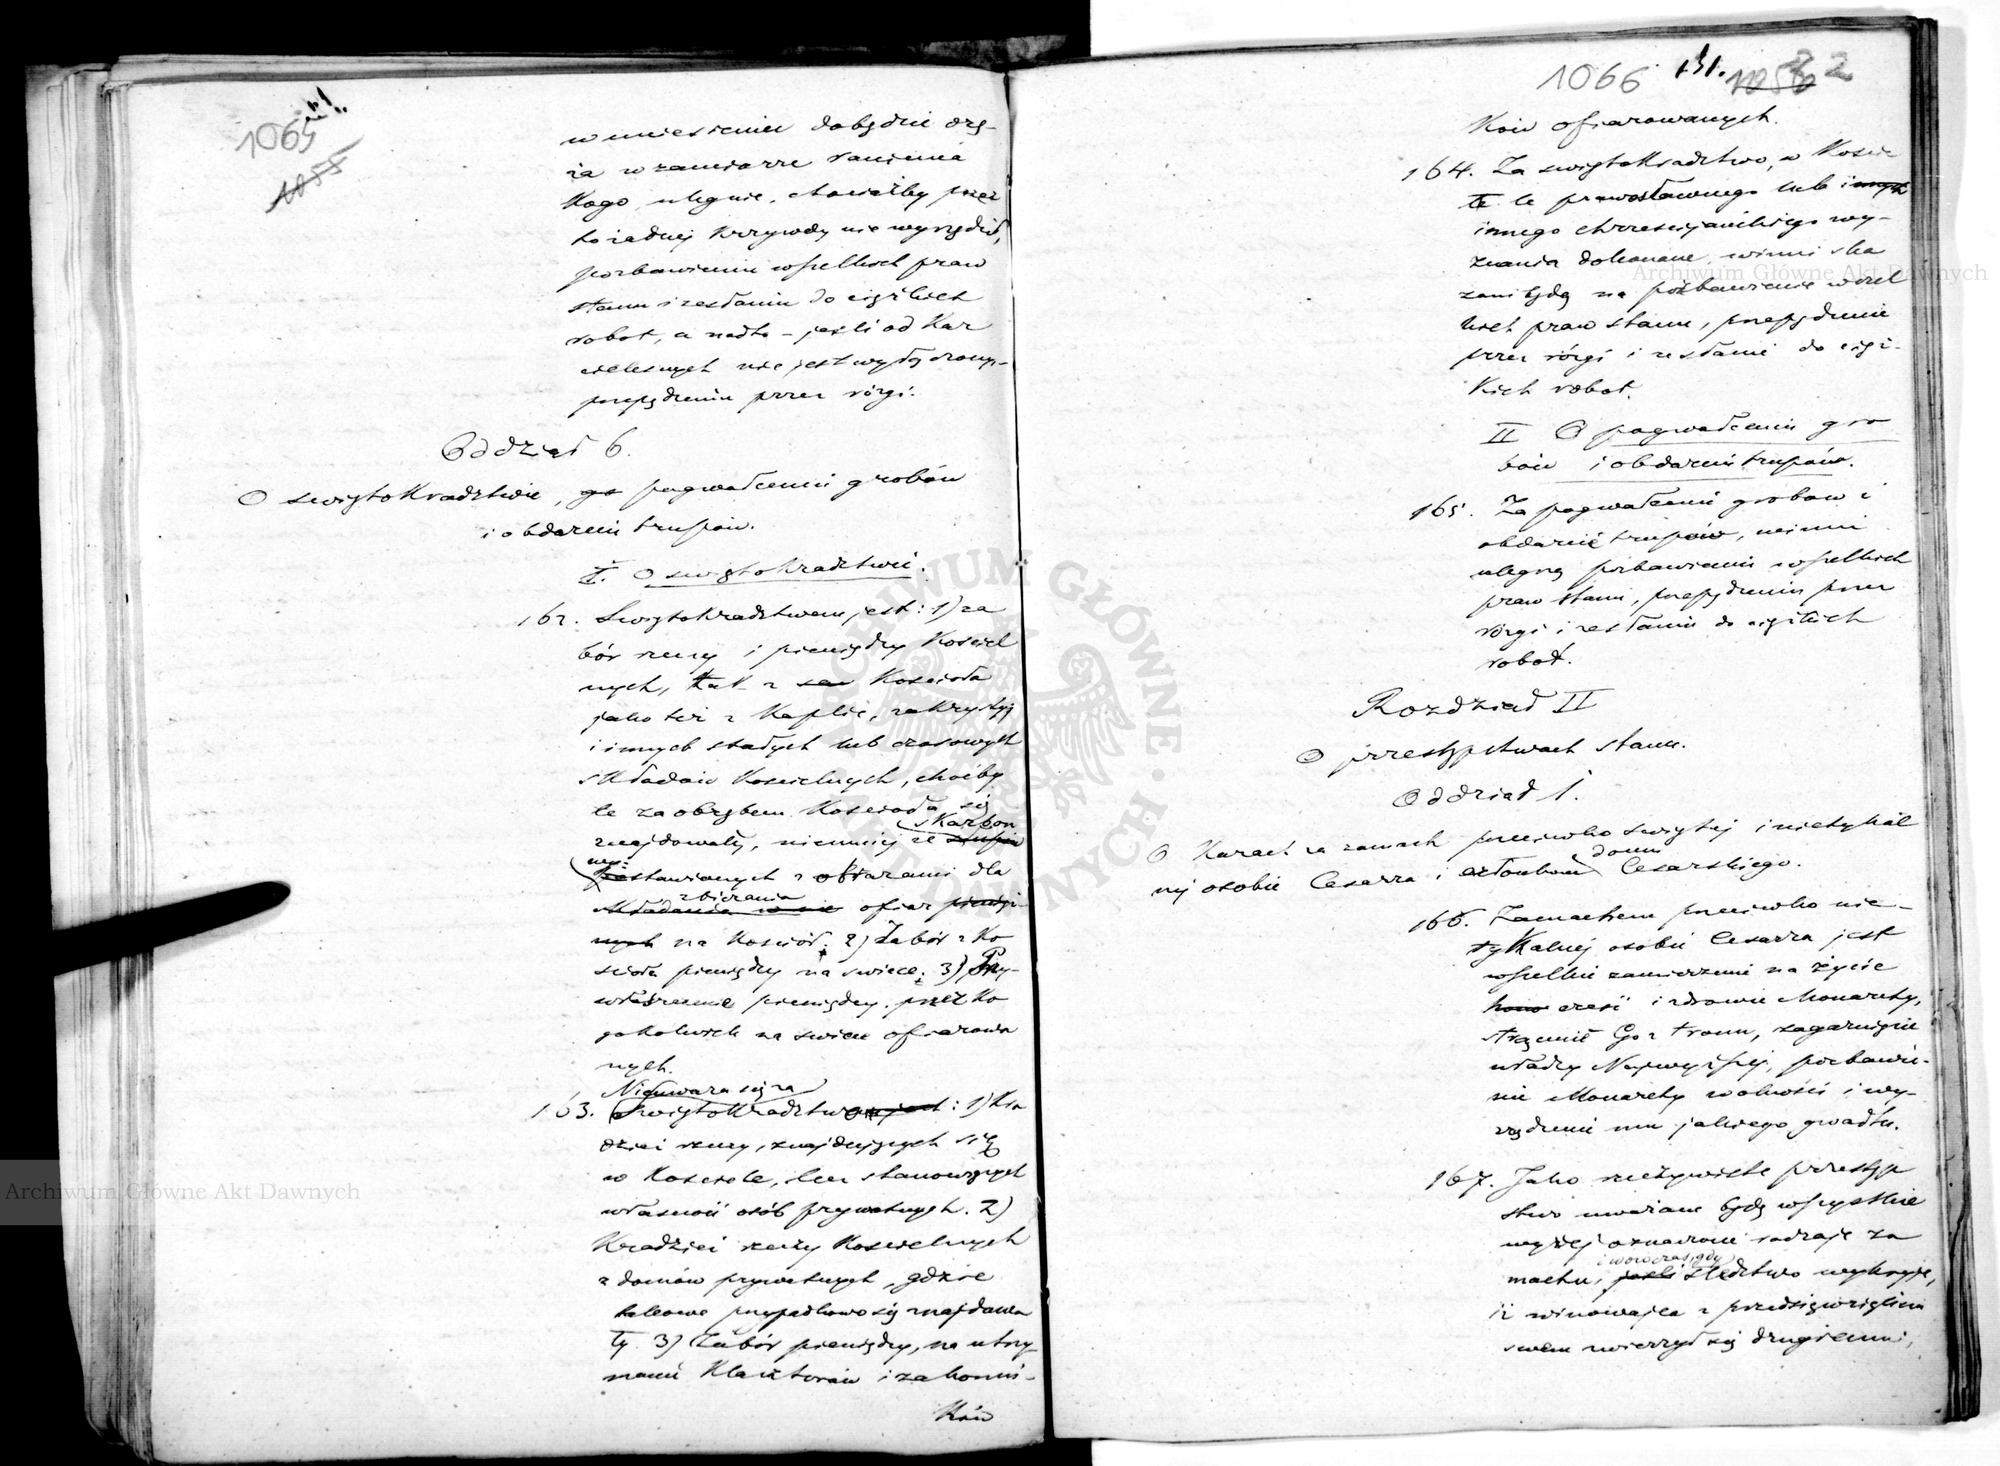 1065
w uniesieniu dobędzie orę-
ża w zamiarze ranienia
kogo, ulegnie, chociażby przez
to żadnej krzywdy nie wyrządził,
pozbawieniu wszelkich praw
stanu i zesłaniu do ciężkich
robot, a nadto - jeśli od kar
cielesnych nie jest wyłączony -
przepędzeniu przez rózgi.
Oddział 6.
O swiętokradztwie, po pogwałceniu grobów
i obdarciu trupów.
I. O swiętokradztwie.
162. Swiętokradztwem jest: 1) za
bór rzeczy i pieniędzy Kosciel
nych, tak z Kościoła
jako też z Kaplic, zakrystyj
i innych stałych lub czasowych
składów Koscielnych, choćby
te za obrębem Kościoła się
znajdowały, niemniej ze skarbon
wy-
stawionych z obrazami dla
zbierania
składania w nie ofiar pienięż-
nych na Kościół. 2) Zabór z Ko
scioła pieniędzy na swiece. 3) Przy-
właszczenie pieniędzy, przez ko
gokolwiek na swiece ofiarowa
nych.
Nie uważa się za
163. Swiętokradztwo jest: 1) Kra
dzież rzeczy, znajdujących się
w Kosciele, lecz stanowiących
własność osób prywatnych. 2)
Kradzież rzeczy Koscielnych
z domów prywatnych, gdzie
takowe przypadkowo się znajdowa
ły. 3) Zabór pieniędzy, na utrzy
manie Klasztorów i zakonni-
ków
1066 131. 82
ków ofiarowanych.
164. Za swiętokradztwo, w Koscie
le prawosławnego lub innych
innego chrzescijańskiego wy-
znania dokonane, winni ska
zani będą na pozbawienie wszel
kich praw stanu, przepędzenie
przez rózgi i zesłanie do cięż-
kich robot.
II O pogwałceniu gro
bów i obdarciu trupów.
165. Za pogwałcenie grobów i
obdarcie trupów, winni
ulegną pozbawieniu wszelkich
praw stanu, przepędzeniu przez
rózgi i zesłaniu do ciężkich
robot.
Rozdział II
O przestępstwach stanu.
Oddział 1.
O Karach za zamach przeciwko swiętej i nietykal
domu
nej osobie Cesarza i członkom Cesarskiego.
166. Zamachem przeciwko nie-
tykalnej osobie Cesarza jest
wszelkie zamierzenie na życie
hono czesć i zdrowie Monarchy,
strącenie Go z tronu, zagarnięcie
władzy Najwyższej, pozbawie-
nie Monarchy wolności i wy-
rządzenie mu jakiego gwałtu.
167. Jako rzeczywiste przestęp
stwo uważane będą wszystkie
wyżej oznaczone rodzaje za
i wówczas, gdy
machu, jeśli śledztwo wykryje,
iż winowajca z przedsięwzięciem
swem zwierzył się drugiemu,
Archiwum Główne Akt Dawnych
Archiwum Główne Akt Dawnych
ARCHIWUM GŁÓWNE AKT DAWNYCH